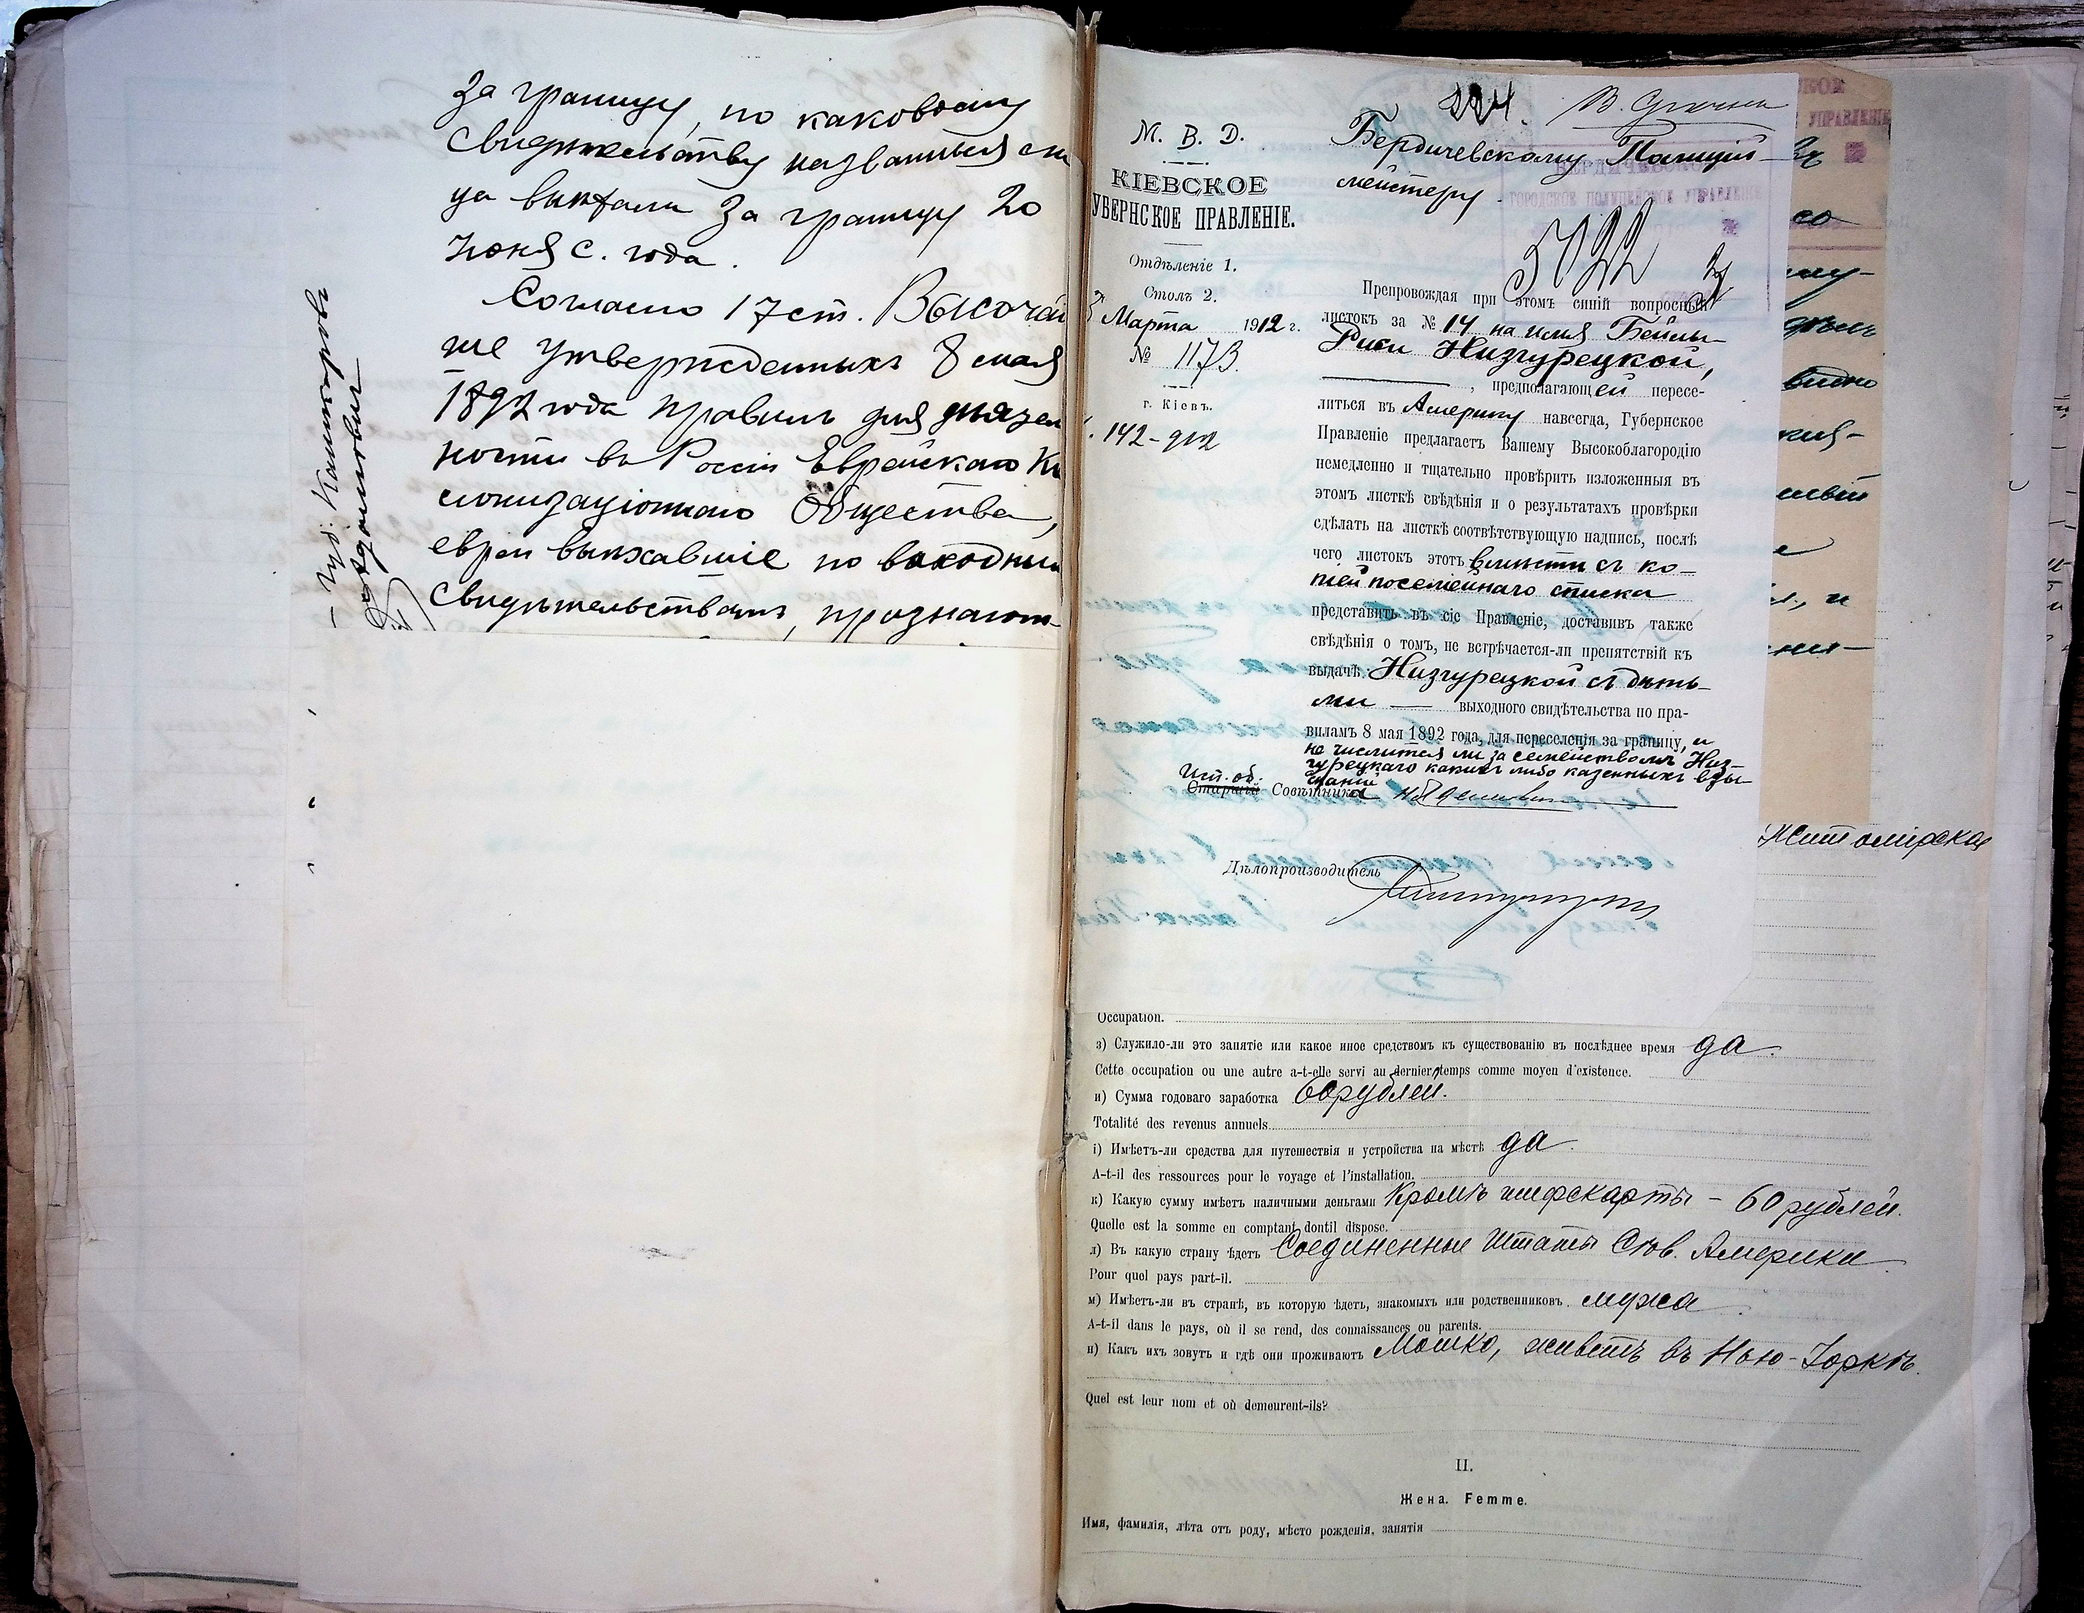 за границу, по каковому
свидѣтельству названныя ли
ца выѣхали за границу 20
Іюня с. года.
Согласно 17 ст. Высочай
ше утвержденныхъ 8 мая
1892 года правилъ для дѣятел
ности въ Россіи Еврейскаго Ко
лонизаціоннаго Общества,
евреи выѣхавшіе по выходнымъ
свидѣтельствамъ, признают-
224.
М. В. Д.
КІЕВСКОЕ
УБЕРНСКОЕ ПРАВЛЕНІЕ.
Отдѣленіе 1.
Столъ 2.
Марта 1912 г.
№ 1173.
г. Кіевъ.
142-
Бердичевскому Полиций-
мейстеру
БЕРДИЧЕВСКОЕ
ГОРОДСКОЕ ПОЛИЦЕЙСКОЕ УПРАВЛЕНІЕ
5022
Препровождая при этомъ синій вопросный
листокъ за № 14 на имя Бейлы-
Рики Низгурецкой,
, предполагающей пересе-
литься въ Америку навсегда, Губернское
Правленіе предлагаетъ Вашему Высокоблагородію
немедленно и тщательно провѣрить изложенныя въ
этомъ листкѣ свѣдѣнія и о результатахъ провѣрки
сдѣлать на листкѣ соотвѣтствующую надпись, послѣ
чего листокъ этотъ вмѣстѣ съ ко-
піей посемейнаго списка
представить въ сіе Правленіе, доставивъ также
свѣдѣнія о томъ, не встрѣчается-ли препятствій къ
выдачѣ Низгурецкой съ дѣть-
ми — выходного свидѣтельства по пра-
виламъ 8 мая 1892 года, для переселенія за границу, и
не числится ли за семействомъ Низ-
гурецкаго какихъ либо казенныхъ взы-
сканій
Исп. об.
Старшій Совѣтника
Дѣлопроизводитель
УПРАВЛЕНІЕ
Житомірская
Occupation.
з) Служило-ли это занятіе или какое иное средствомъ къ существованію въ послѣднее время да.
Cette occupation ou une autre a-t-elle servi au dernier temps comme moyen d'existence.
и) Сумма годоваго заработка 60 рублей.
Totalité des revenus annuels
і) Имѣетъ-ли средства для путешествія и устройства на мѣстѣ да.
A-t-il des ressources pour le voyage et l'installation.
к) Какую сумму имѣетъ наличными деньгами Кромѣ шифскарты – 60 рублей.
Quelle est la somme en comptant dontil dispose.
л) Въ какую страну ѣдетъ Соединенные Штаты Сѣв. Америки.
Pour quel pays part-il.
м) Имѣетъ-ли въ странѣ, въ которую ѣдетъ, знакомыхъ или родственниковъ. мужа.
A-t-il dans le pays, où il se rend, des connaissances ou parents.
н) Какъ ихъ зовутъ и гдѣ они проживаютъ Мошко, живетъ въ Нью-Іоркѣ.
Quel est leur nom et où demeurent-ils?
II.
Жена. Femme.
Имя, фамилія, лѣта отъ роду, мѣсто рожденія, занятія